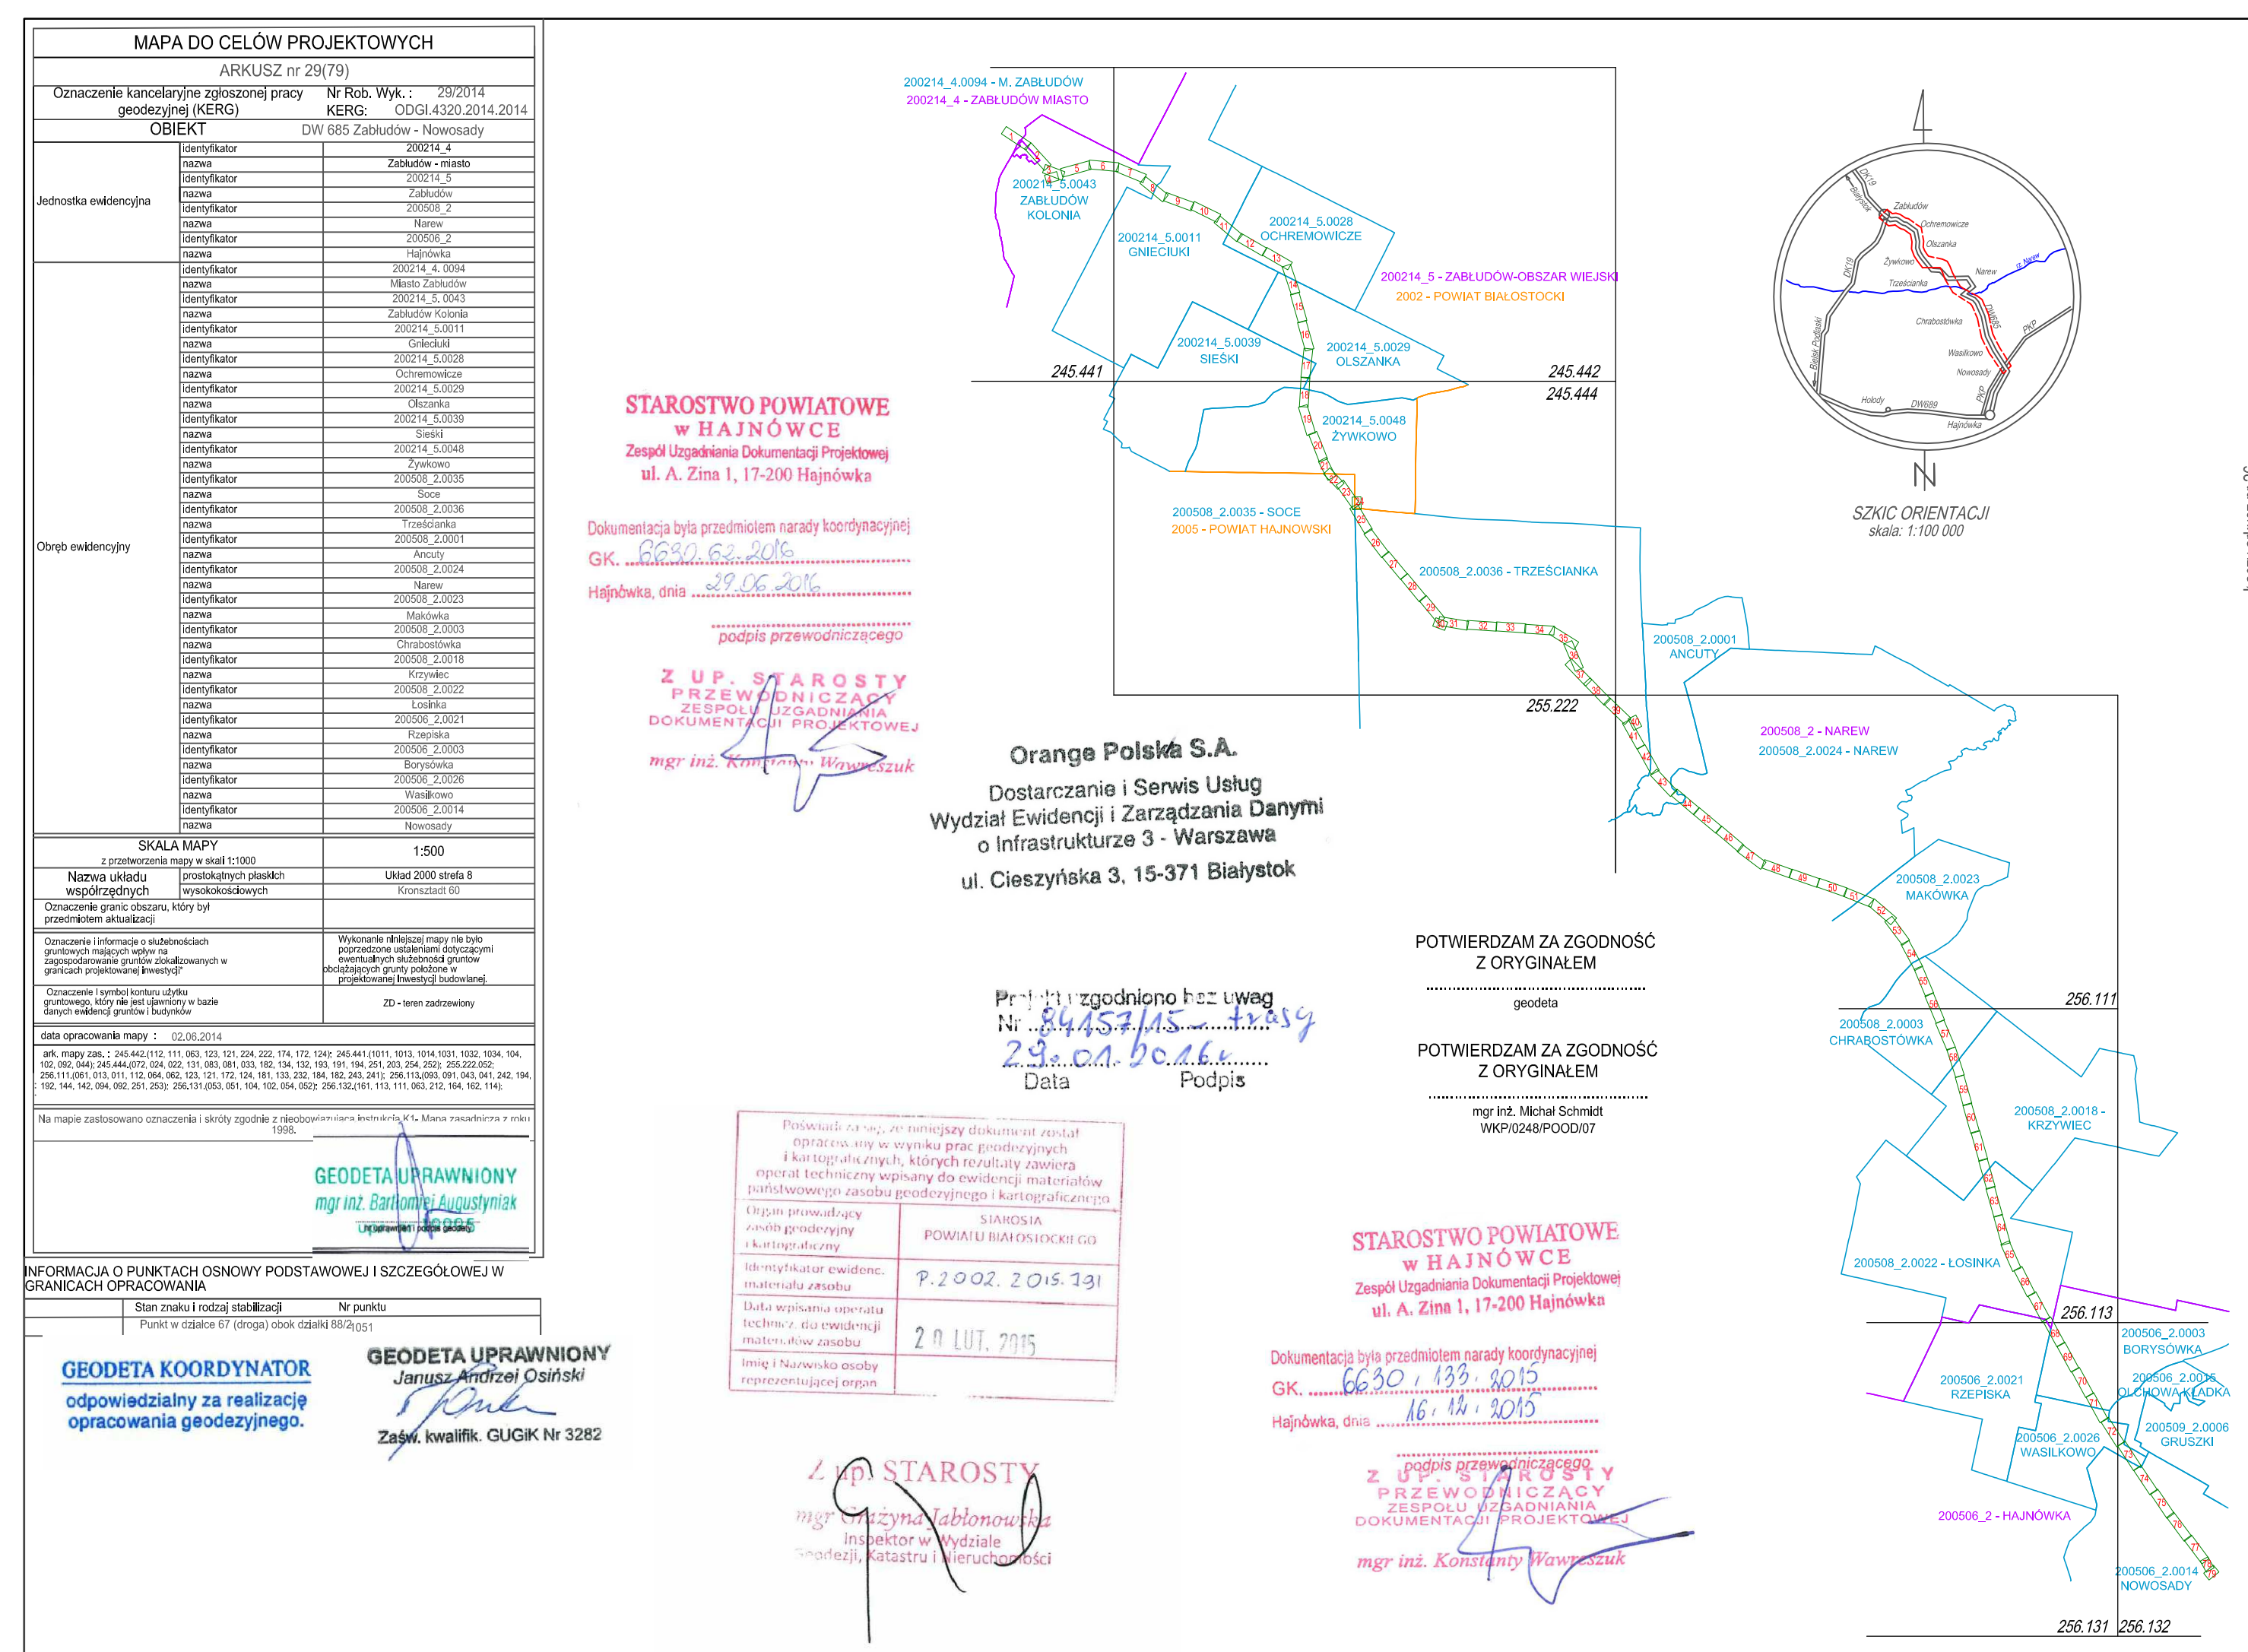 MAPA DO CELÓW PROJEKTOWYCH
ARKUSZ nr 29(79)
Oznaczenie kancelaryjne zgłoszonej pracy geodezyjnej (KERG)
Nr Rob. Wyk. : 29/2014
KERG: ODGI.4320.2014.2014
OBIEKT DW 685 Zabłudów - Nowosady
Jednostka ewidencyjna
identyfikator 200214_4
nazwa Zabłudów - miasto
identyfikator 200214_5
nazwa Zabłudów
identyfikator 200508_2
nazwa Narew
identyfikator 200506_2
nazwa Hajnówka
Obręb ewidencyjny
identyfikator 200214_4. 0094
nazwa Miasto Zabłudów
identyfikator 200214_5. 0043
nazwa Zabłudów Kolonia
identyfikator 200214_5.0011
nazwa Gnieciuki
identyfikator 200214_5.0028
nazwa Ochremowicze
identyfikator 200214_5.0029
nazwa Olszanka
identyfikator 200214_5.0039
nazwa Sieśki
identyfikator 200214_5.0048
nazwa Żywkowo
identyfikator 200508_2.0035
nazwa Soce
identyfikator 200508_2.0036
nazwa Trześcianka
identyfikator 200508_2.0001
nazwa Ancuty
identyfikator 200508_2.0024
nazwa Narew
identyfikator 200508_2.0023
nazwa Makówka
identyfikator 200508_2.0003
nazwa Chrabostówka
identyfikator 200508_2.0018
nazwa Krzywiec
identyfikator 200508_2.0022
nazwa Łosinka
identyfikator 200506_2.0021
nazwa Rzepiska
identyfikator 200506_2.0003
nazwa Borysówka
identyfikator 200506_2.0026
nazwa Wasilkowo
identyfikator 200506_2.0014
nazwa Nowosady
SKALA MAPY
z przetworzenia mapy w skali 1:1000
1:500
Nazwa układu współrzędnych
prostokątnych płaskich Układ 2000 strefa 8
wysokokościowych Kronsztadt 60
Oznaczenie granic obszaru, który był
przedmiotem aktualizacji
Oznaczenie i informacje o służebnościach
gruntowych mających wpływ na
zagospodarowanie gruntów zlokalizowanych w
granicach projektowanej inwestycji*
Wykonanie niniejszej mapy nie było
poprzedzone ustaleniami dotyczącymi
ewentualnych służebności gruntow
obciążających grunty położone w
projektowanej Inwestycji budowlanej.
Oznaczenie i symbol konturu użytku
gruntowego, który nie jest ujawniony w bazie
danych ewidencji gruntów i budynków
ZD - teren zadrzewiony
data opracowania mapy : 02.06.2014
ark. mapy zas. : 245.442.(112, 111, 063, 123, 121, 224, 222, 174, 172, 124); 245.441.(1011, 1013, 1014,1031, 1032, 1034, 104,
102, 092, 044); 245.444,(072, 024, 022, 131, 083, 081, 033, 182, 134, 132, 193, 191, 194, 251, 203, 254, 252); 255.222,052;
256,111,(061, 013, 011, 112, 064, 062, 123, 121, 172, 124, 181, 133, 232, 184, 182, 243, 241); 256,113,(093, 091, 043, 041, 242, 194,
192, 144, 142, 094, 092, 251, 253); 256,131,(053, 051, 104, 102, 054, 052); 256,132,(161, 113, 111, 063, 212, 164, 162, 114);
Na mapie zastosowano oznaczenia i skróty zgodnie z nieobowiązującą instrukcją K1- Mapa zasadnicza z roku
1998.
GEODETA UPRAWNIONY
mgr inż. Bartłomiej Augustyniak
nr uprawnień i podpis geodety
INFORMACJA O PUNKTACH OSNOWY PODSTAWOWEJ I SZCZEGÓŁOWEJ W
GRANICACH OPRACOWANIA
Stan znaku i rodzaj stabilizacji Nr punktu
Punkt w działce 67 (droga) obok działki 88/2 1051
GEODETA KOORDYNATOR
odpowiedzialny za realizację
opracowania geodezyjnego.
GEODETA UPRAWNIONY
Janusz Andrzej Osiński
Zaśw. kwalifik. GUGiK Nr 3282
STAROSTWO POWIATOWE
w HAJNÓWCE
Zespół Uzgadniania Dokumentacji Projektowej
ul. A. Zina 1, 17-200 Hajnówka
Dokumentacja była przedmiotem narady koordynacyjnej
GK. 6630.62.2016
Hajnówka, dnia 29.06.2016
podpis przewodniczącego
Z UP. STAROSTY
PRZEWODNICZĄCY
ZESPOŁU UZGADNIANIA
DOKUMENTACJI PROJEKTOWEJ
mgr inż. Konstanty Wawreszuk
Orange Polska S.A.
Dostarczanie i Serwis Usług
Wydział Ewidencji i Zarządzania Danymi
o Infrastrukturze 3 - Warszawa
ul. Cieszyńska 3, 15-371 Białystok
Projekt uzgodniono bez uwag
Nr 84157/15 - trasy
29.01.2016r.
Data Podpis
POTWIERDZAM ZA ZGODNOŚĆ
Z ORYGINAŁEM
geodeta
POTWIERDZAM ZA ZGODNOŚĆ
Z ORYGINAŁEM
mgr inż. Michał Schmidt
WKP/0248/POOD/07
Poświadcza się, że niniejszy dokument został
opracowany w wyniku prac geodezyjnych
i kartograficznych, których rezultaty zawiera
operat techniczny wpisany do ewidencji materiałów
państwowego zasobu geodezyjnego i kartograficznego
Organ prowadzący
zasób geodezyjny
i kartograficzny
STAROSTA
POWIATU BIAŁOSTOCKIEGO
Identyfikator ewidenc.
materiału zasobu
P.2002.2015.791
Data wpisania operatu
technicz. do ewidencji
materiałów zasobu
20 LUT. 2015
Imię i Nazwisko osoby
reprezentującej organ
Z up. STAROSTY
mgr Grażyna Jabłonowska
Inspektor w Wydziale
Geodezji, Katastru i Nieruchomości
STAROSTWO POWIATOWE
w HAJNÓWCE
Zespół Uzgadniania Dokumentacji Projektowej
ul. A. Zina 1, 17-200 Hajnówka
Dokumentacja była przedmiotem narady koordynacyjnej
GK. 6630.133.2015
Hajnówka, dnia 16.12.2015
podpis przewodniczącego
Z UP. STAROSTY
PRZEWODNICZĄCY
ZESPOŁU UZGADNIANIA
DOKUMENTACJI PROJEKTOWEJ
mgr inż. Konstanty Wawreszuk
200214_4.0094 - M. ZABŁUDÓW
200214_4 - ZABŁUDÓW MIASTO
200214_5.0043
ZABŁUDÓW
KOLONIA
200214_5.0011
GNIECIUKI
200214_5.0028
OCHREMOWICZE
200214_5 - ZABŁUDÓW-OBSZAR WIEJSKI
2002 - POWIAT BIAŁOSTOCKI
200214_5.0039
SIEŚKI
200214_5.0029
OLSZANKA
245.441
245.442
245.444
200214_5.0048
ŻYWKOWO
200508_2.0035 - SOCE
2005 - POWIAT HAJNOWSKI
200508_2.0036 - TRZEŚCIANKA
200508_2.0001
ANCUTY
255.222
200508_2 - NAREW
200508_2.0024 - NAREW
200508_2.0023
MAKÓWKA
256.111
200508_2.0003
CHRABOSTÓWKA
200508_2.0018 -
KRZYWIEC
200508_2.0022 - ŁOSINKA
256.113
200506_2.0003
BORYSÓWKA
200506_2.0021
RZEPISKA
200506_2.0015
OLCHOWA KŁADKA
200509_2.0006
GRUSZKI
200506_2.0026
WASILKOWO
200506_2 - HAJNÓWKA
200506_2.0014
NOWOSADY
256.131 256.132
1
2
5
6
7
8
9
10
11
12
13
14
15
16
17
18
19
20
21
22
23
24
25
26
27
28
29
30
31
32
33
34
35
36
37
38
39
40
41
42
43
44
45
46
47
48
49
50
51
52
53
54
55
56
57
58
59
60
61
62
63
64
65
66
67
68
69
70
71
72
73
74
75
76
77
78
79
DK19
Białystok
Zabłudów
Ochremowicze
Olszanka
Żywkowo
DK19
Narew
rz. Narew
Trześcianka
Chrabostówka
DW685
PKP
Bielsk Podlaski
Wasilkowo
Nowosady
PKP
Hołody
DW689
Hajnówka
N
SZKIC ORIENTACJI
skala: 1:100 000